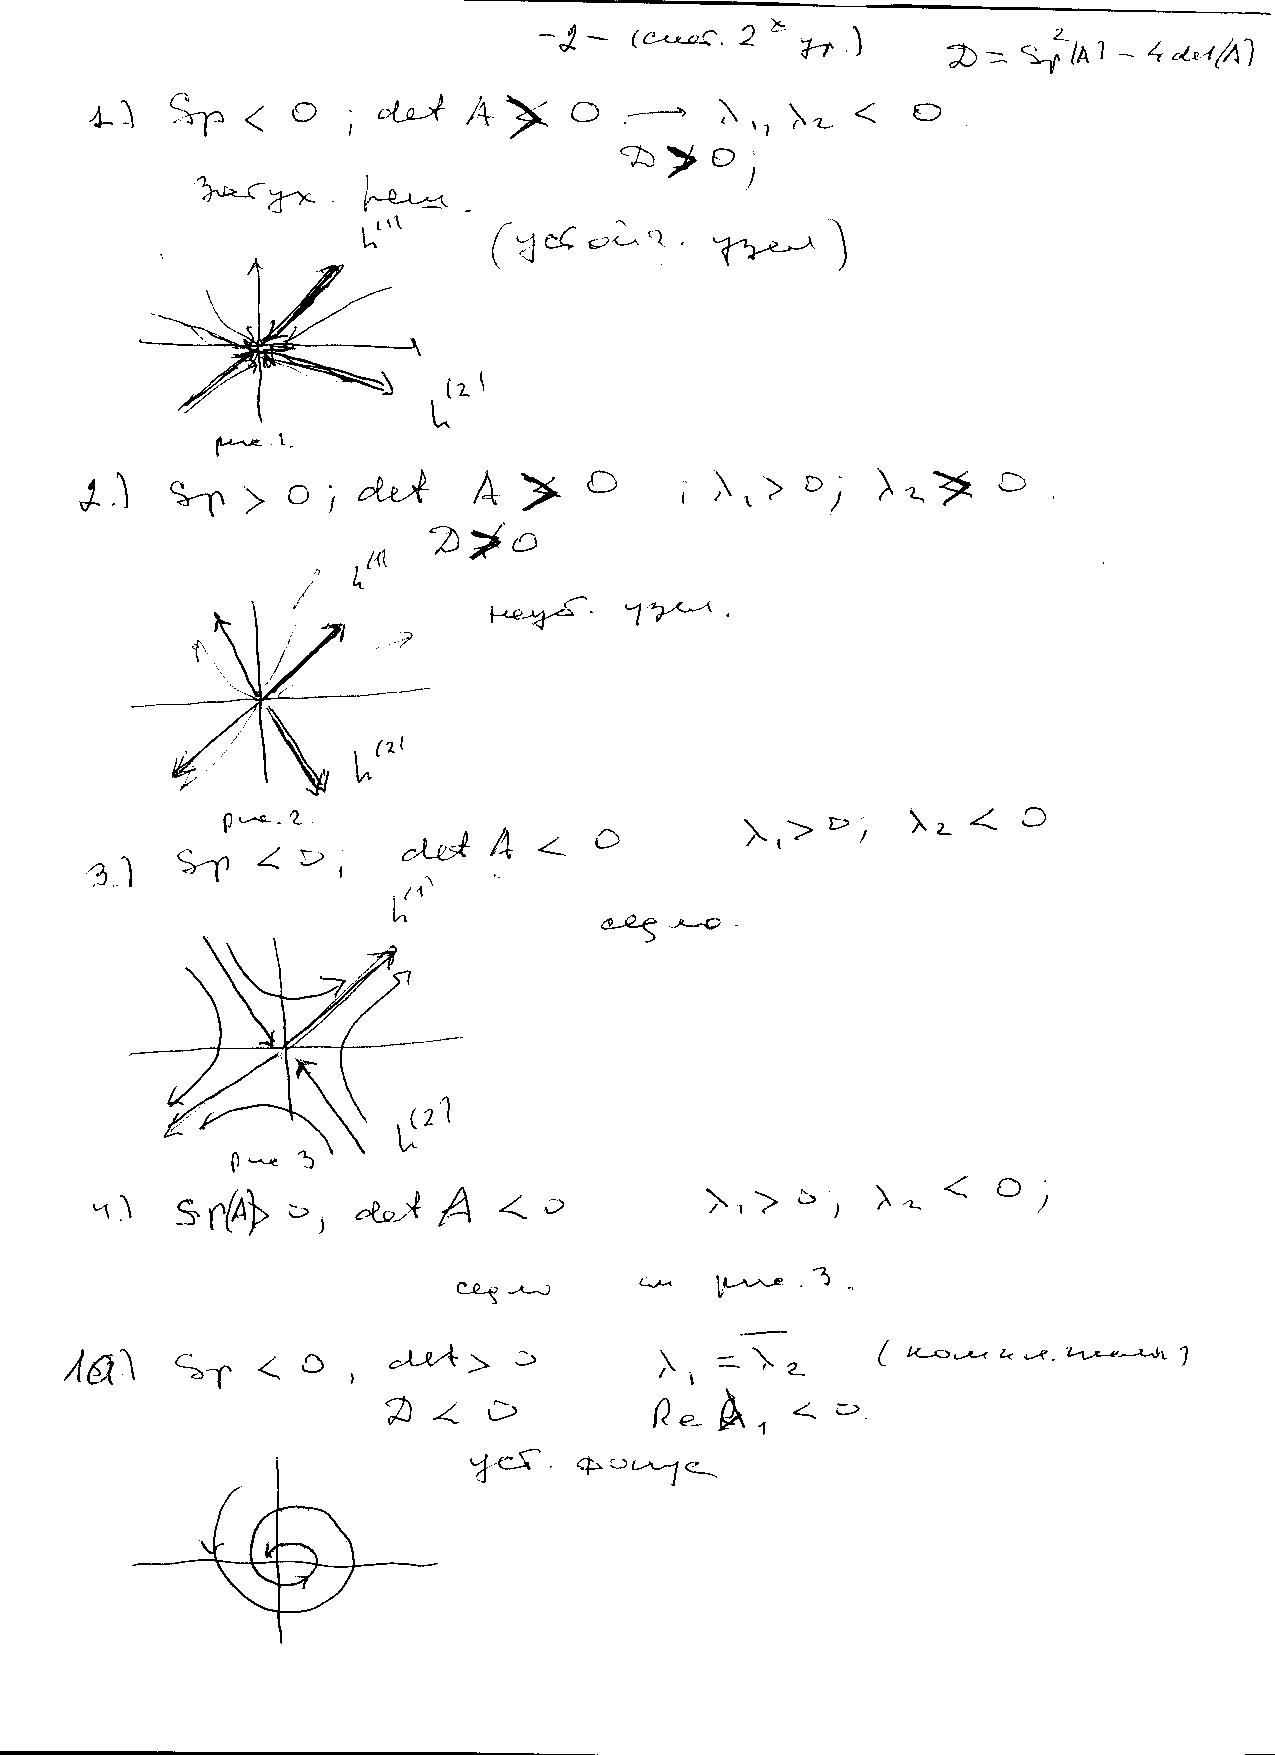 -2- (сист. 2х ур.) D = Sp²(A) - 4 det(A)
1.) Sp < 0 ; det A > 0 → λ₁, λ₂ < 0
D > 0;
затух. реш.
(устойч. узел)
h⁽¹⁾
h⁽²⁾
рис. 1.
2.) Sp > 0 ; det A > 0 ; λ₁ > 0; λ₂ > 0.
D > 0
h⁽¹⁾
неуст. узел.
h⁽²⁾
рис. 2.
3.) Sp < 0; det A < 0 λ₁ > 0; λ₂ < 0
h⁽¹⁾
седло.
h⁽²⁾
рис 3
4.) Sp(A) > 0, det A < 0 λ₁ > 0; λ₂ < 0;
седло см рис. 3.
1а.) Sp < 0, det > 0 λ₁ = λ̅₂
D < 0 Re λ₁ < 0.
уст. фокус